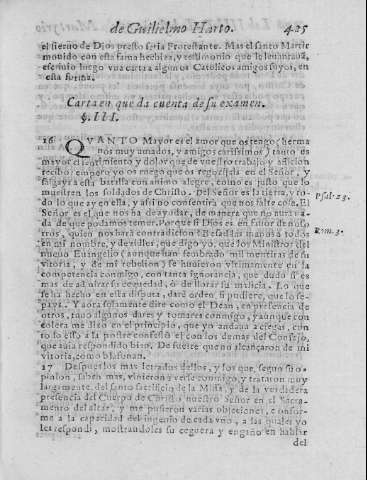 de Guilielmo Harto. 425
el sieruo de Dios presto seria Protestante. Mas el santo Martir
mouido con esta fama hechiza, y testimonio que le leuantauā,
escriuio luego vna carta a algunos Catolicos amigos suyos, en
esta forma.
Carta en que da cuenta de su examen.
§. III.
16 QVANTO Mayor es el amor que os tengo (herma
nos muy amados, y amigos carissimos) tanto en
mayor el sentimiento y dolor que de vuestro trabajo y aflicion
recibo: empero yo os ruego que os regozijeis en el Señor, y
salgays a esta batalla con animo alegre, como es justo que lo
muestren los soldados de Christo. Del Señor es la tierra, y to-
do lo que ay en ella, y assi no consentirà que nos falte cosa. El
Señor es el que nos ha de ayudar, de manera que no aura na-
da de que podamos temer. Porque si Dios es en fauor de noso
tros, quien nos harà contradicion? Besad las manos a todos
en mi nombre, y dezilles, que digo yo, que los Ministros del
nueuo Euangelio (aunque han sembrado mil mentiras de su
vitoria, y de mi rebelion) se huuieron vltimamente en la
competencia conmigo, con tanta ignorancia, que dudo si es
mas de admirar su ceguedad, ò de llorar su malicia. Lo que
se ha hecho en esta disputa, darè orden, si pudiere, que lo se-
pays. Y aora solamente digo el Dean, en presencia de
otros, tuuo algunos dares y tomares conmigo, y aunque con
colera me dixo en el principio, que yo andaua a ciegas, con
todo esso a la postre confessò el con los demas del Consejo,
que auia respondido bien. De suerte que no alcançaron de mi
vitoria, como blasonan.
17 Despues los mas letrados dellos, y los que, segun su o-
pinion, saben mas, vinieron a verse conmigo, y trataron muy
largamente, del santo sacrificio de la Missa, y de la verdadera
presencia del Cuerpo de Christo nuestro Señor en el Sacra-
mento del altar, y me pusieron varias objeciones, conforme
a la capacidad del ingenio de cada vno, a las quales yo
les respondi, mostrandoles su ceguera y engaño en hablar
del
Psal. 23.
Rom. 3.